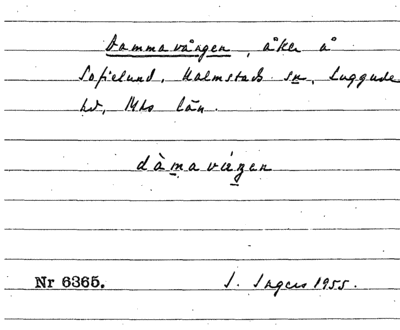 Dammavången, åker å
Sofielund, Halmstads sn, Luggude
hd, Mhs län.
dàmavàŋen
Nr 6365. I. Ingers 1955.